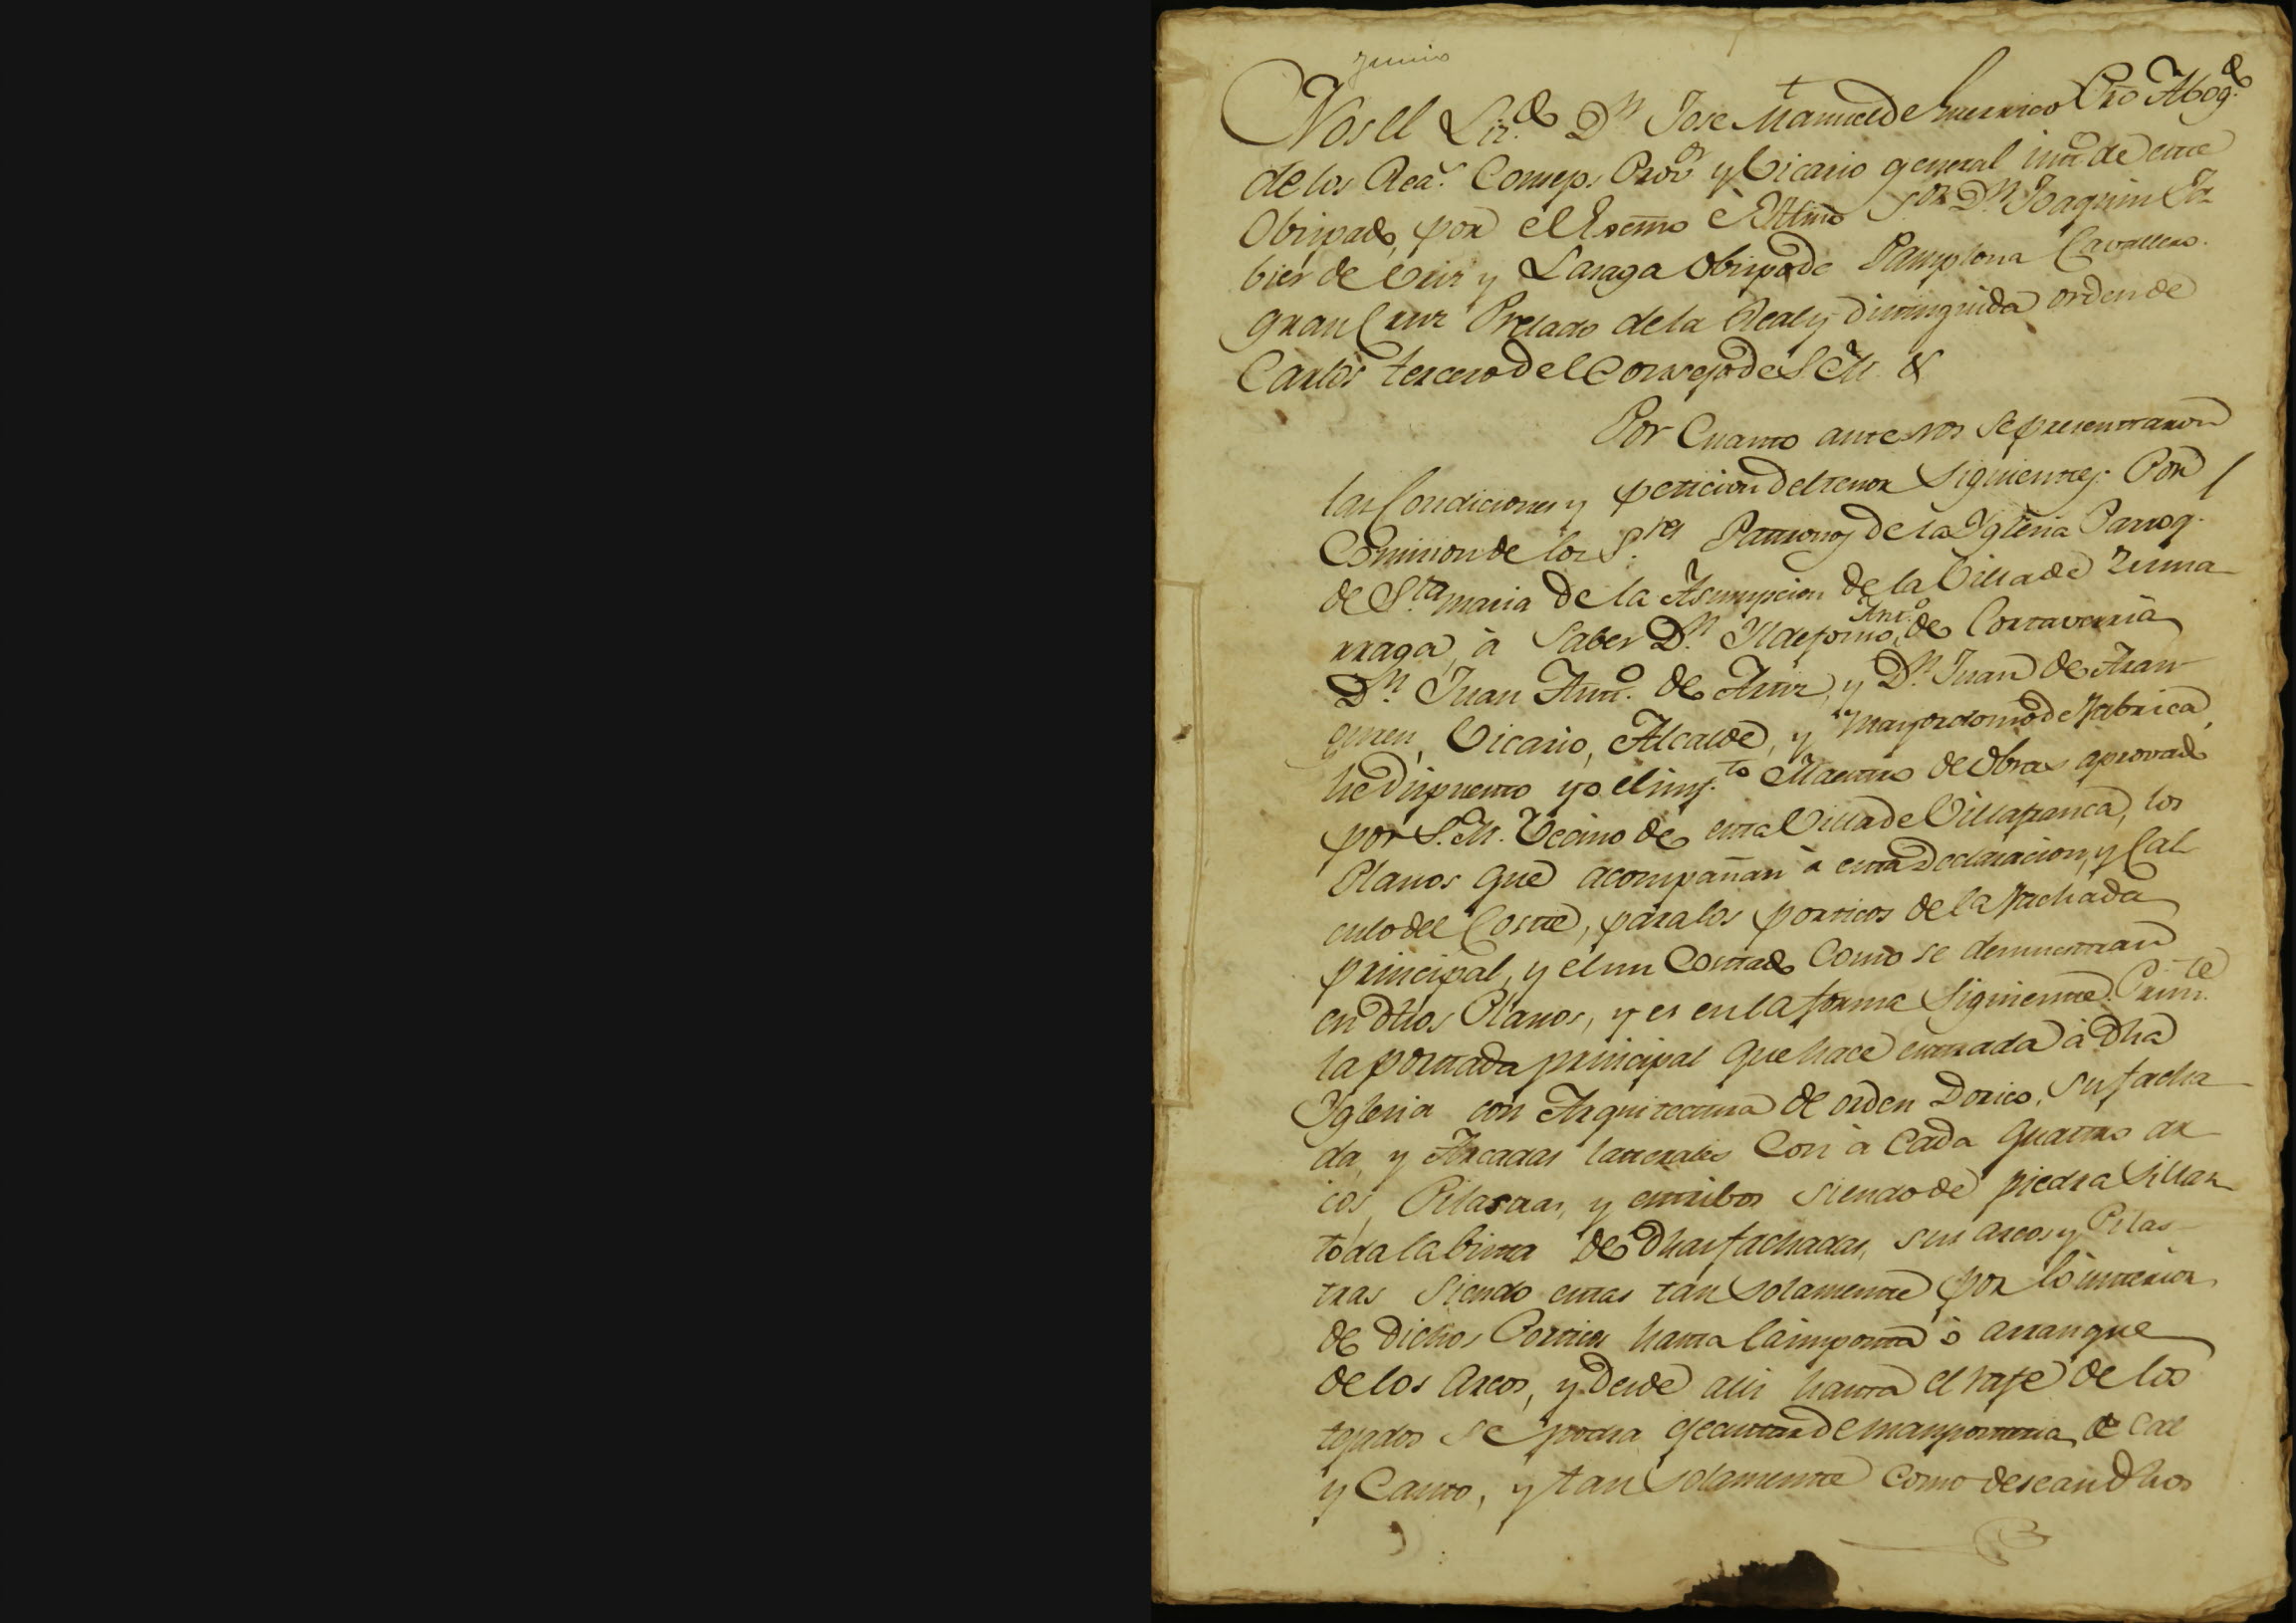 Junio
Nos el Lic.do Dn Jose Manuel de Guerrico Pro Abog.do
de los Rea.s Consejos Prov.or y Vicario general int.o de este
Obispado, por el Exc̃mo è Illmo S.or Dn Joaquin Xa
bier de Uriz y Lasaga Obispo de Pamplona Cavallero
gran Cruz Prelado de la Real y distinguida orden de
Carlos tercero del Consejo de S. M. &
Por Cuanto ante nos se presentaron
las Condiciones y peticion del tenor Siguientes: Por
Comision de los S.res Patronos de la Yglesia Parroq.
de S.ta maria de la Asumpcion de la Villa de Zuma
rraga, à Saber Dn. Yldefonso Ant.o de Cortaverria
Dn. Juan Ant.o de Ariz, y Dn. Juan de Aran
guren, Vicario, Alcalde, y Mayordomo de Fabrica,
he dispuesto yo el inf.to Maestro de Obras aprovado
por S. M. Vecino de esta Villa de Villafranca, los
Planos que acompañan à esta Declaracion, y Cal
culo del Coste, para los porticos de la Fachada
principal, y el un Costado Como se demuestran
en dhos Planos, y es en la forma Siguiente. Prim.te
la portada principal que hace entrada à dha
Yglesia con Arquitectura de orden Dorico, su facha
da, y Arcadas laterales Con à Cada quatro ar
cos, Pilastras, y estribos siendo de piedra Sillar
toda la vista de dhas fachadas, sus arcos y Pilas
tras siendo estas tan solamente por lo interior
de dichos Porticos hasta la imposta ò arranque
de los Arcos, y desde alli hasta el rafe de los
tejados se podra ejecutar de mamposteria de Cal
y Canto, y tan solamente Como desean dhos